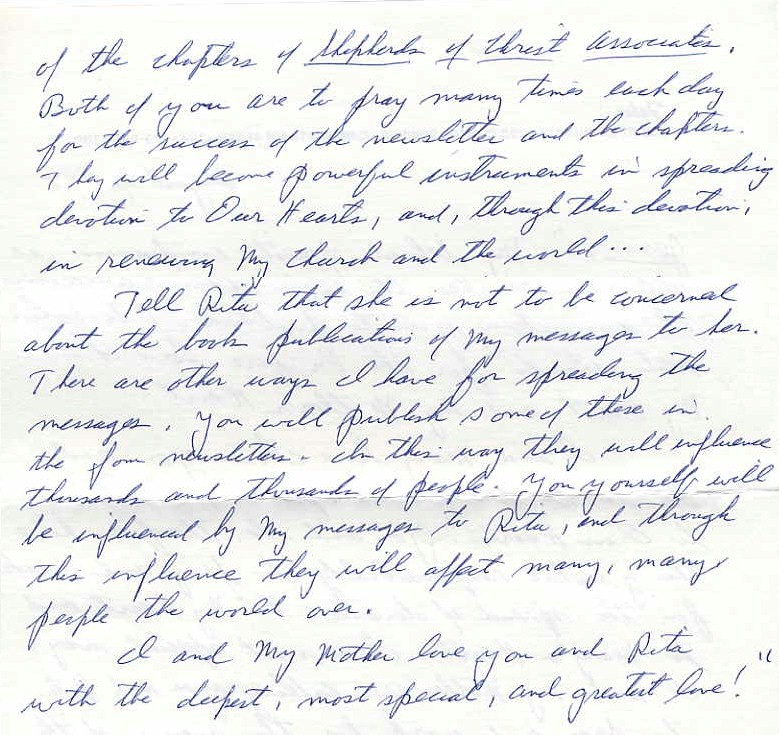 of the chapters of Shepherds of Christ Associates.
Both of you are to pray many times each day
for the success of the newsletter and the chapters.
They will become powerful instruments in spreading
devotion to Our Hearts, and, through this devotion,
in renewing My Church and the world...
Tell Rita that she is not to be concerned
about the book publications of My messages to her.
There are other ways I have for spreading the
messages. You will publish some of these in
the newsletters. In this way they will influence
thousands and thousands of people. You yourself will
be influenced by My messages to Rita, and through
this influence they will affect many, many
people the world over.
I and My Mother love you and Rita
with the deepest, most special, and greatest love!"